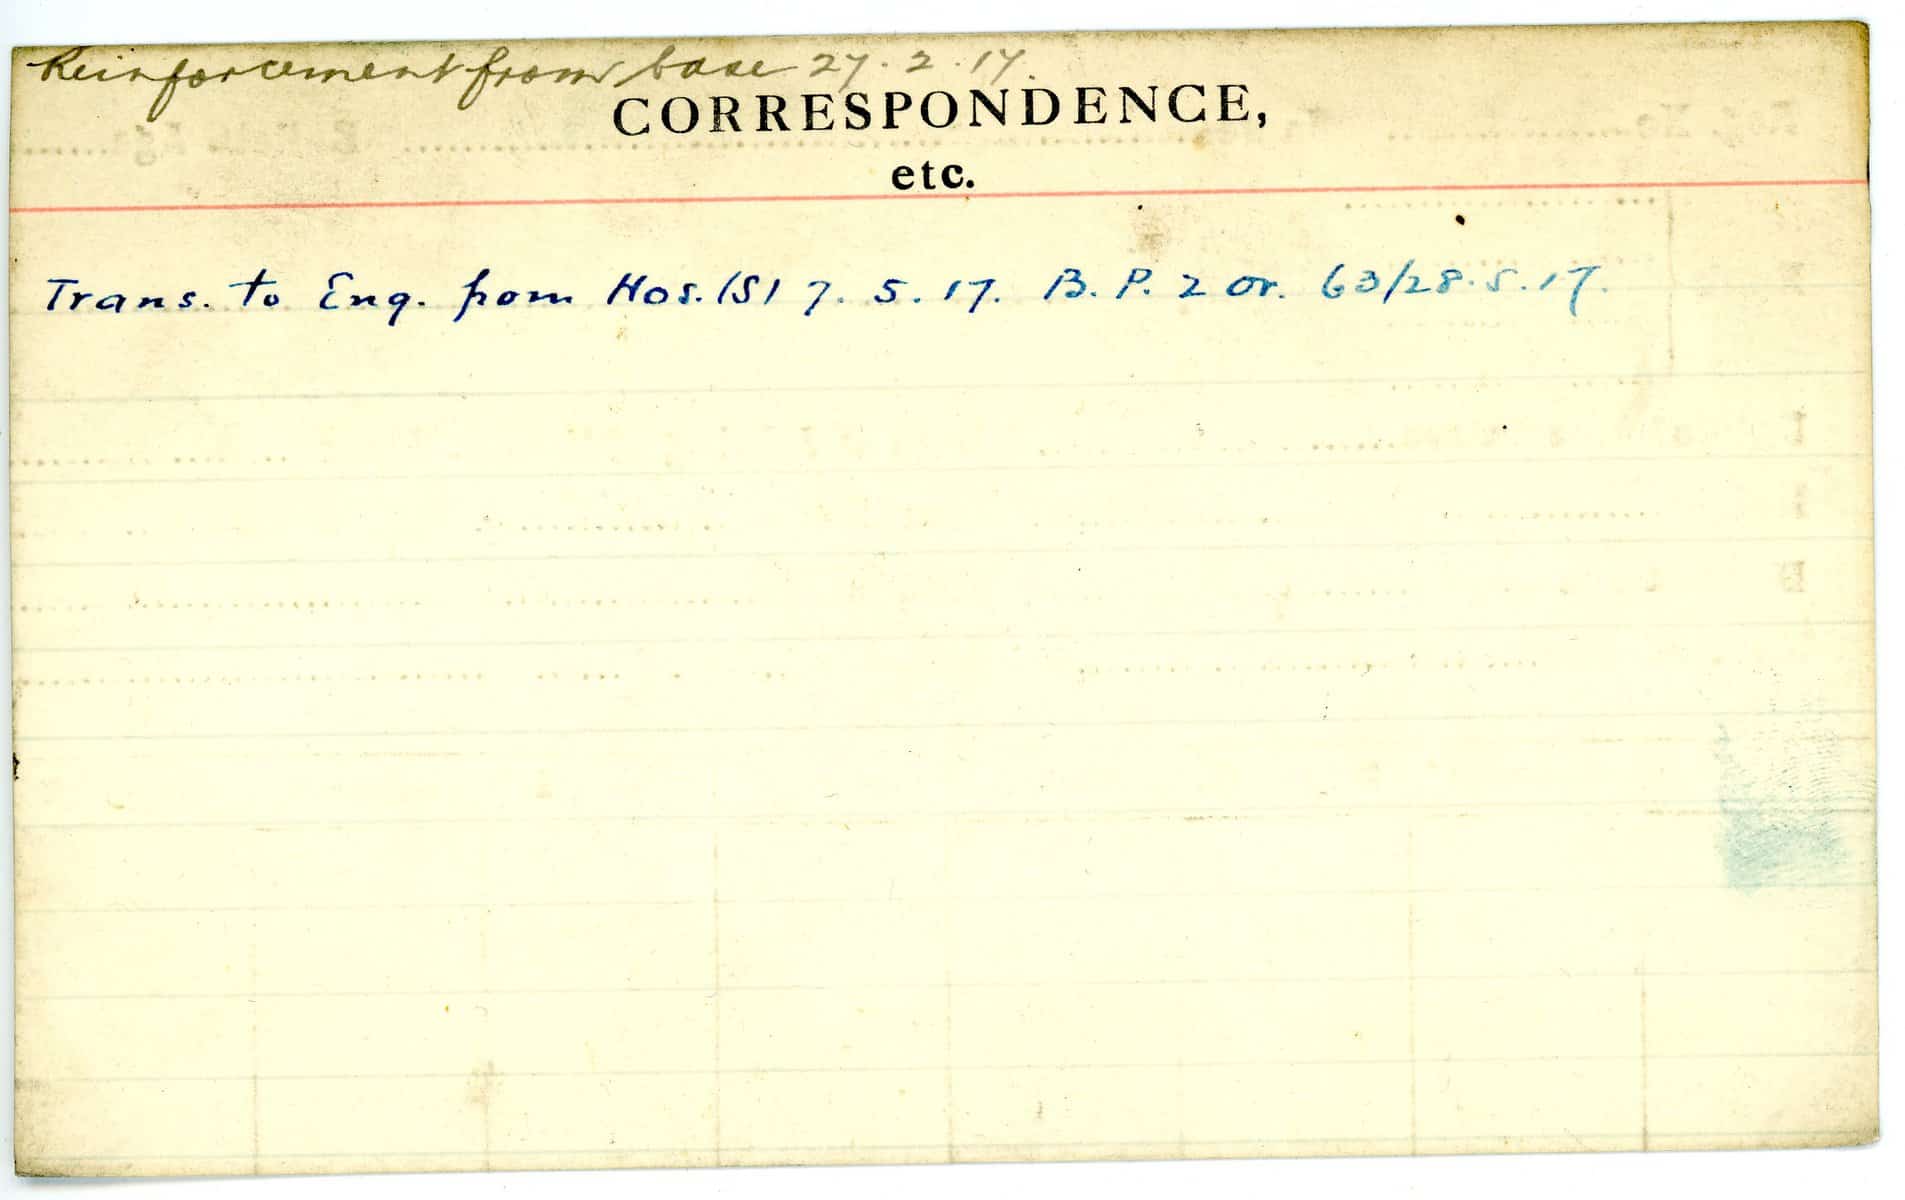 Reinforcement from base 27.2.17.
CORRESPONDENCE,
etc.
Trans. to Eng. from Hos. (S) 7.5.17. B.P. 2 or. 63/28.5.17.